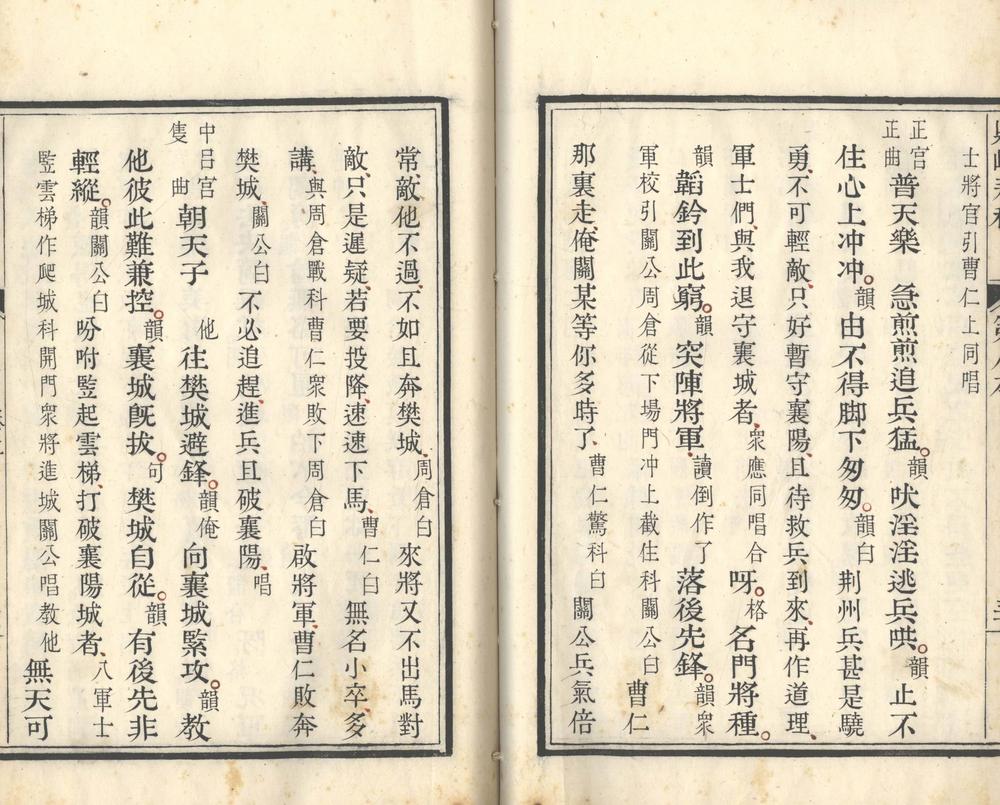 士將官引曹仁上同唱
正宮
正曲 普天樂 急煎煎追兵猛韻吠淫淫逃兵哄韻止不
住心上冲冲韻由不得脚下匆匆韻白荆州兵甚是驍
勇不可輕敵只好暫守襄陽且待救兵到來再作道理
軍士們與我退守襄城者衆應同唱合呀格名門將種
韻韜鈐到此窮韻突陣將軍讀倒作了落後先鋒韻衆
軍校引關公周倉從下場門冲上截住科關公白曹仁
那裏走俺關某等你多時了曹仁驚科白關公兵氣倍
常敵他不過不如且奔樊城周倉白來將又不出馬對
敵只是遲疑若要投降速速下馬曹仁白無名小卒多
講與周倉戰科曹仁衆敗下周倉白啟將軍曹仁敗奔
樊城關公白不必追趕進兵且破襄陽唱
中呂宮
隻曲 朝天子 他往樊城避鋒韻俺向襄城緊攻韻教
他彼此難兼控韻襄城旣拔句樊城自從韻有後先非
輕縱韻關公白吩咐竪起雲梯打破襄陽城者八軍士
竪雲梯作爬城科開門衆將進城關公唱教他無天可